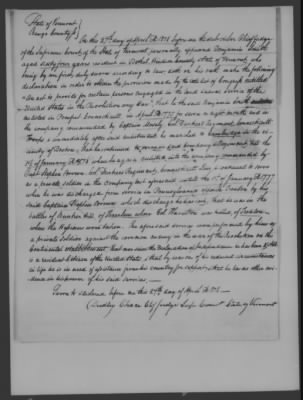 State of Vermont
Orange County ss
On this 27th day of April AD 1818 before me the subscriber Chief Judge
of the Supreme Court of the State of Vermont, personally appeared Benjamin Smith
aged sixty four years resident in Bethel, Windsor County, State of Vermont, who
being by me first duly sworn according to law, doth on his oath make the following
declaration in order to obtain the provision made by the late law of Congress entitled
"An act to provide for certain persons engaged in the land and naval service of the
United States in the Revolutionary War" that he the said Benjamin Smith
enlisted in Pomfret Connecticut in April AD 1775 for seven or eight months and in
the company commanded by Captain Regiment Connecticut
Troops & immediately after said enlistment he marched to Cambridge in the vi-
cinity of Boston, that he continued to serve in said Company & Regiment until the
1st of January AD 1776 when he again enlisted into the company commanded by
Capt Stephen Brown Col Durkee's Regiment, Connecticut Line, & continued to serve
as a private soldier in the Company last aforesaid until the 1st of January AD 1777
when he was discharged from service in Pennsylvania opposite Trenton by his
said Captain Stephen Brown which discharge he has lost, that he was in the
battles of Bunker hill, of Haerlem when Col Knowlton was killed, of Trenton
when the Hessians were taken. The aforesaid service was performed by him as
a private Soldier against the common enemy in the war of the Revolution on the
Continental establishment, that ever since the Declaration of Independence he has been & still
is a resident citizen of the United States, & that by reason of his reduced circumstances
in life he is in need of assistance from his country for support, that he has no other evi-
dence in his power of his said services.
Sworn to & declared before me this 27th day of April AD 1818
Dudley Chase Chf Judge Sup. Court State of Vermont